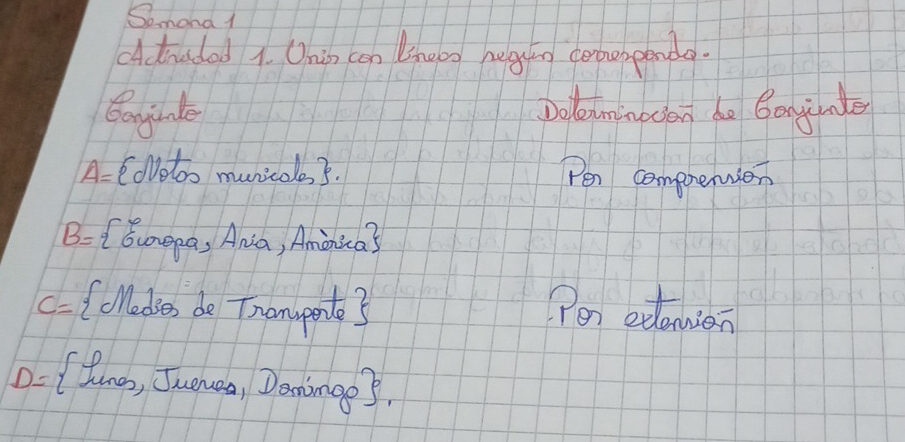 Semana 1
Actividad 1. Unir con líneas según corresponda.
Conjunto Determinación de Conjunto
A={Notas musicales}. Por comprensión
B={Europa, Asia, América}
C={Medios de Transporte} Por extensión
D={Lunes, Jueves, Domingo}.